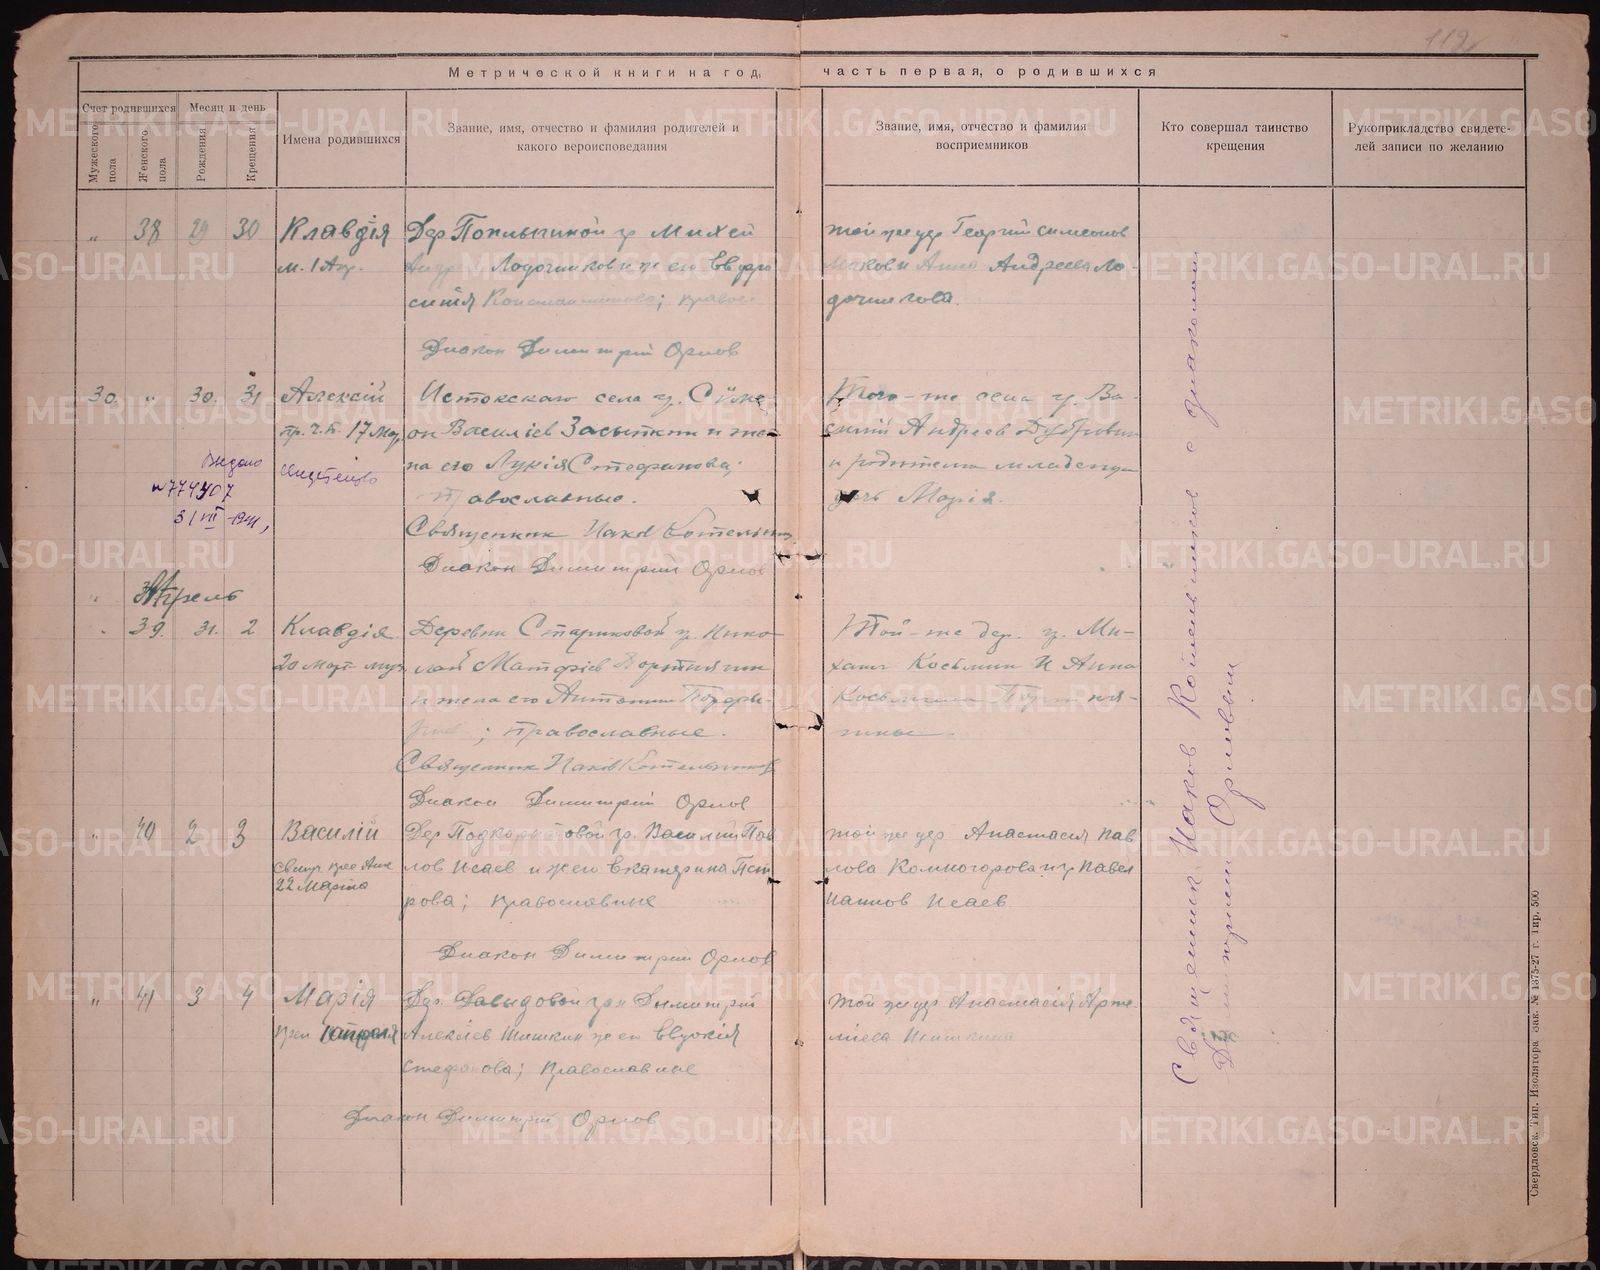 119
Метрической книги на год, часть первая, о родившихся
Счет родившихся
Мужеского пола
Женского пола
Месяц и день
Рождения
Крещения
Имена родившихся
Звание, имя, отчество и фамилия родителей и
какого вероисповедания
Звание, имя, отчество и фамилия
восприемников
Кто совершал таинство
крещения
Рукоприкладство свидете-
лей записи по желанию
" 38 29 30
Клавдія
м. 1 Апр.
гр Михей
Лодочников и жен Ев
Константинова; правос
Диакон Димитрій Орлов
той же дер Георгий Симеонов
и Анна Андреева Ло-
дочникова.
30. " 30. 31
Алексій
17 Мар.
Выдано
свидетельво
№774407
31 VII -1941,
Истокскаго села гр. Симе-
он Васильев Засыпкин и же-
на его Лукія Стефанова;
Православные.
Священник Иаков Котельников
Диакон Димитрий Орлов
Того-же села гр. Ва-
силий Андреев Дубровин
и родителей младенца
дочь Марія.
Апрель
" 39. 31. 2
Клавдія
20 март муч
Деревни Стариковой гр. Нико-
лай Матфіев
и жена его Антонина Порфи-
; православные.
Священник Иаков Котельников
Диакон Димитрий Орлов
Той-же дер. гр. Ми-
хаил Косьмин и Анна
Косьмина
" 40 2 3
Василій
22 Марта
Дер гр. Василий Пав
лов Исаев и жен Екатерина Пет
рова; православные
Диакон Димитрий Орлов
той же дер Анастасия Пав
лова Комногорова и гр Павел
Исаев
" 41 3 4
Марія
1 апреля
Дер. Давыдовой гр Димитрий
Алексіев Шишкин жен Евдокія
Стефанова; Православные
Диакон Димитрий Орлов
той же дер Анастасія Арте
міева Шишкина
Священник Иаков Котельников с диаконом
Димитрием Орловым
Свердловск. Тип. Изолятора Зак. № 1375-27 г. Тир. 500
METRIKI.GASO-URAL.RU